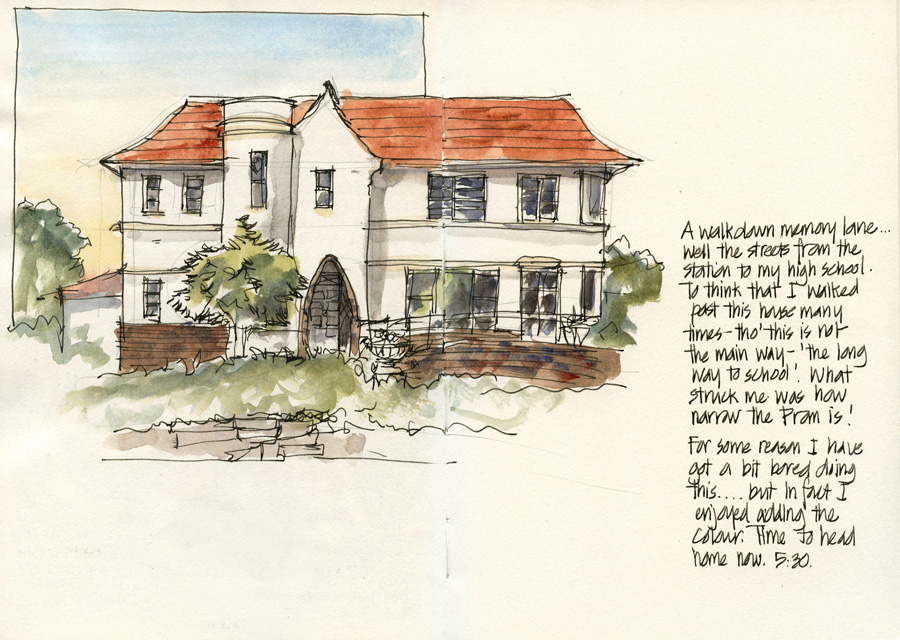 A walk down memory lane...
well the streets from the
station to my high school.
To think that I walked
past this house many
times - tho' this is not
the main way - 'the long
way to school'. What
struck me was how
narrow the Prom is!
For some reason I have
got a bit bored doing
this.... but in fact I
enjoyed adding the
colour. Time to head
home now. 5:30.